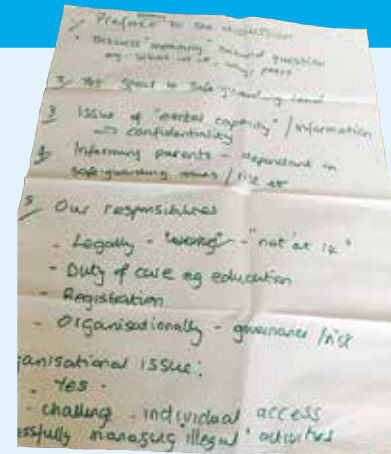 1/ Preface to the discussion
- Discuss meaning behind question
eg. what is it, why, peers
2/ speak to safe guarding lead
3/ Issue of "mental capacity" / information
=> confidentiality
4/ Informing parents - dependant on
safe-guarding issues / risk etc
5/ Our responsibilities
- Legally - "wrong" - "not at 14"
- Duty of care eg education
- Registration
- Organisationally - governance / risk
ganisational issue:
- Yes -
- challenge - individual access
essfully managing 'illegal' activities